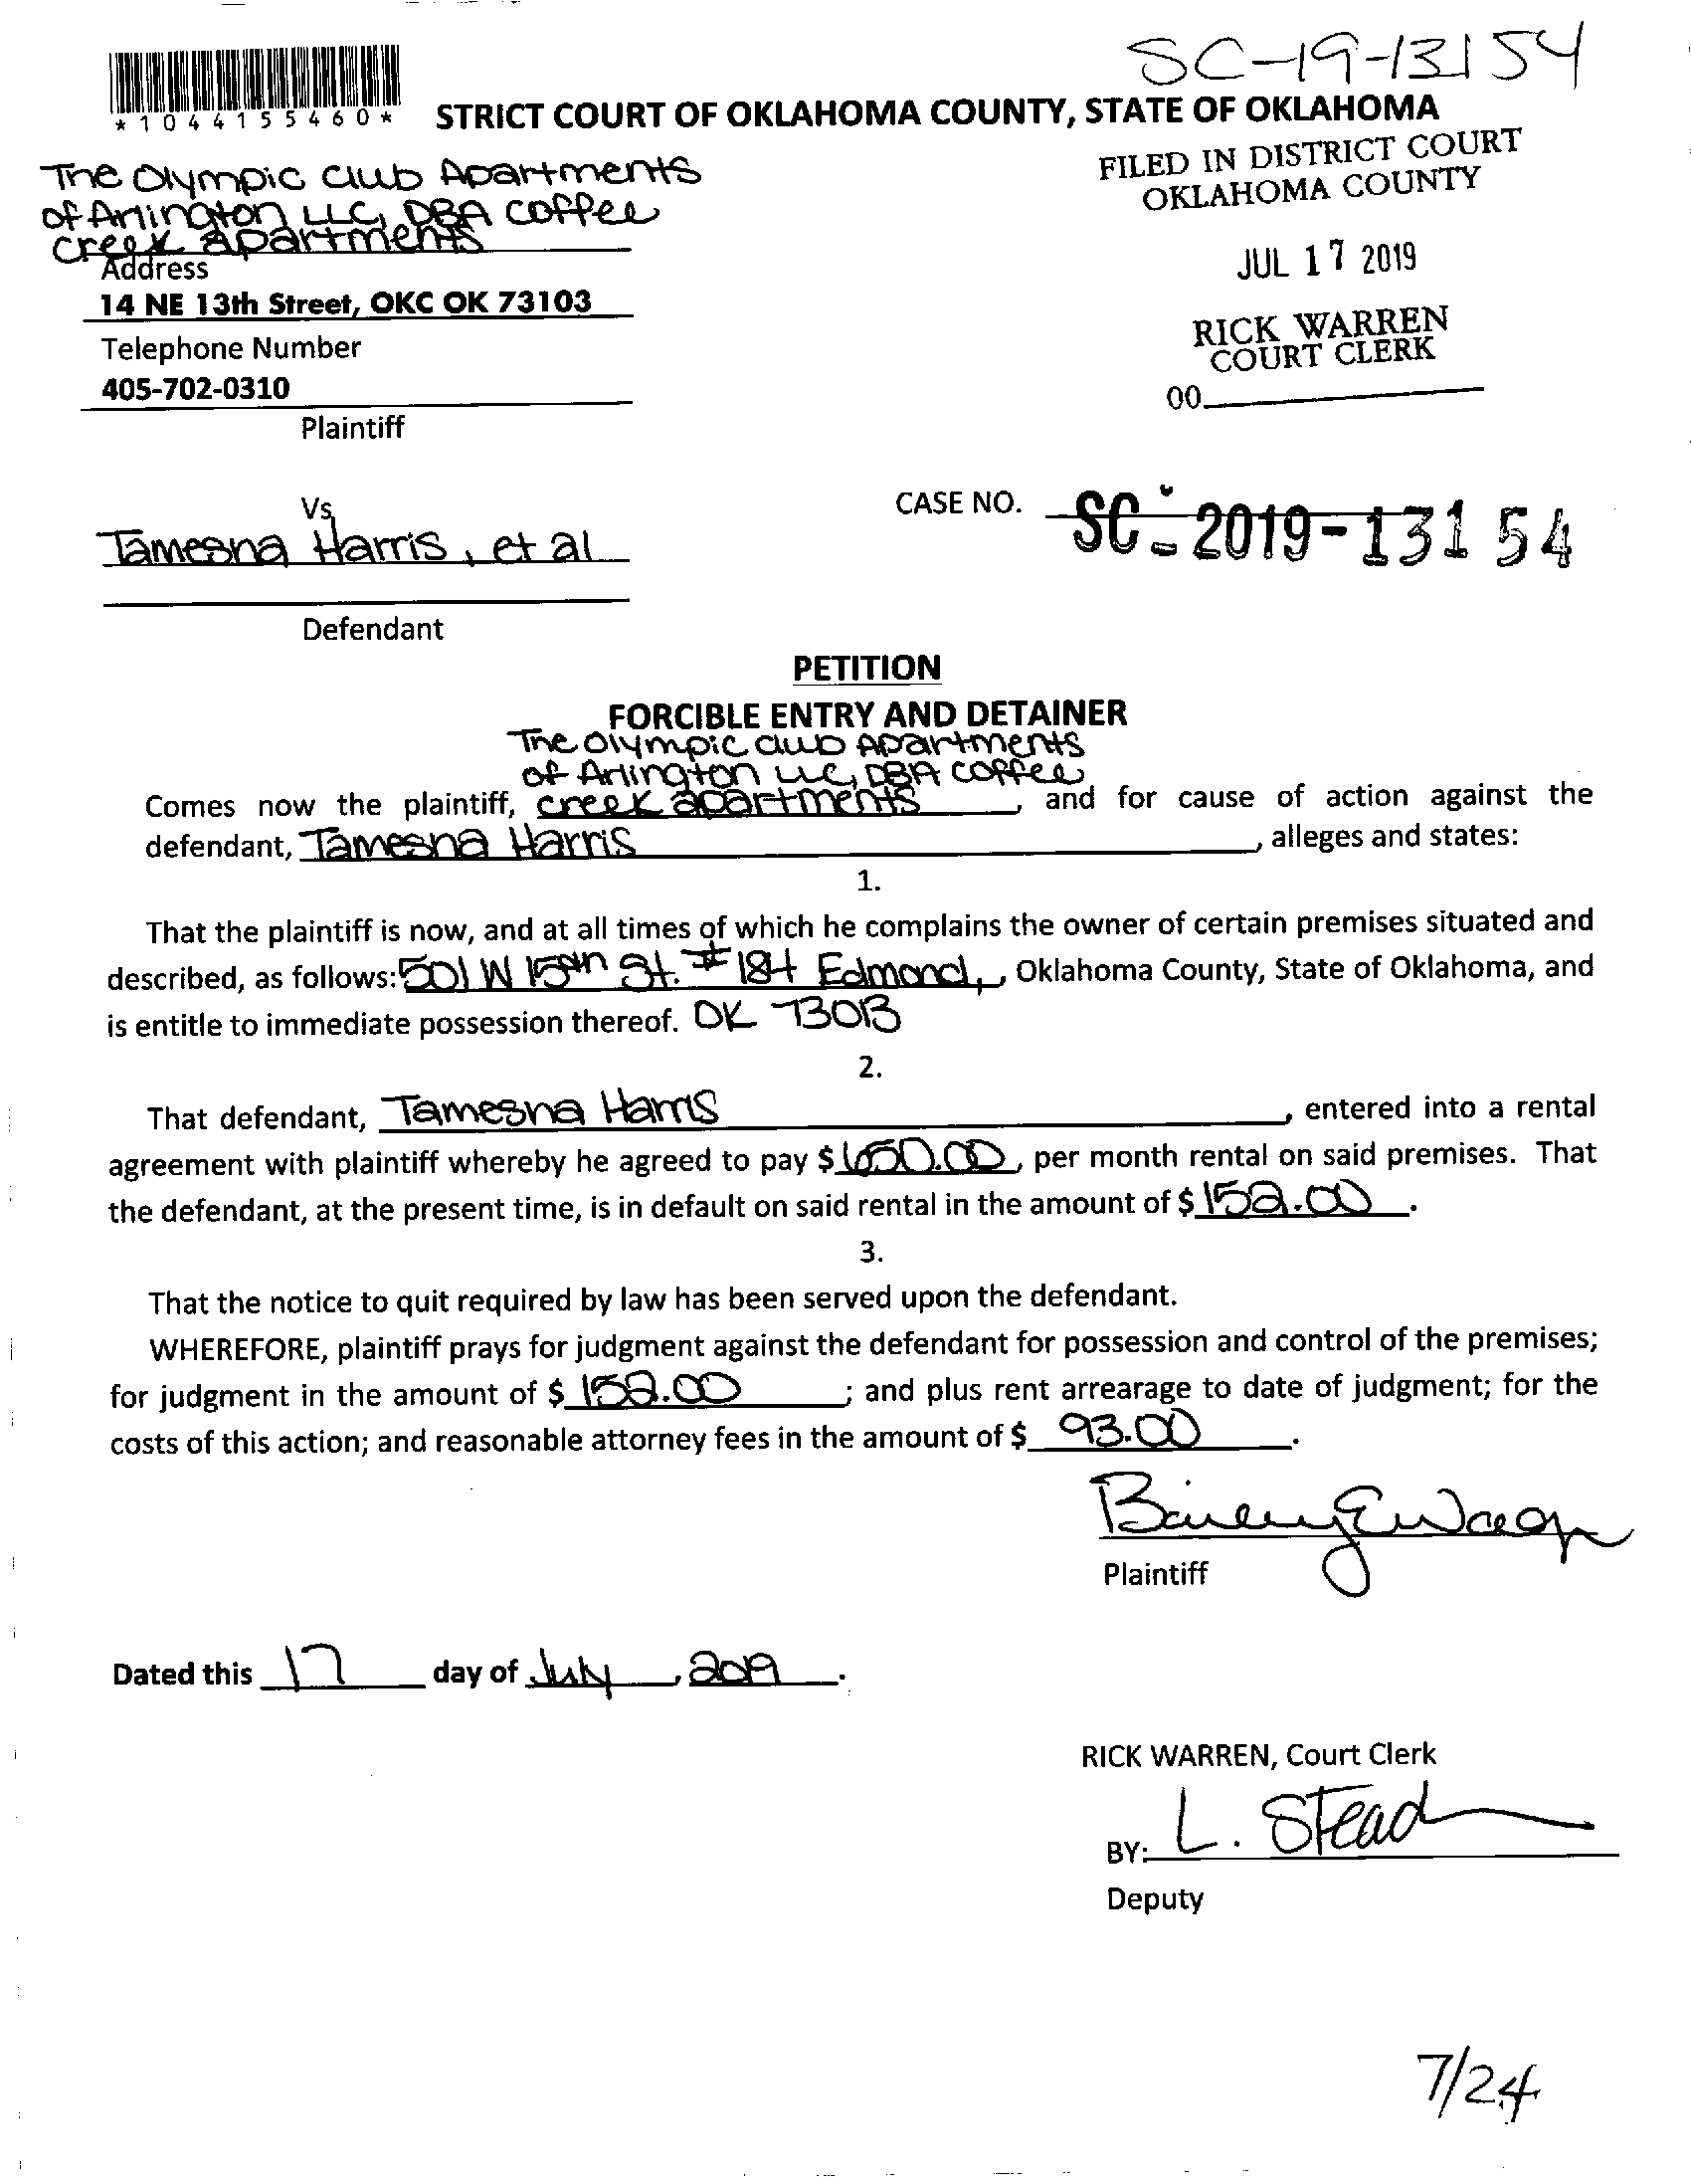 SC-19-13154
*1044155460*
STRICT COURT OF OKLAHOMA COUNTY, STATE OF OKLAHOMA
The Olympic Club Apartments
of Arlington LLC, DBA Coffee
Creek apartments
Address
14 NE 13th Street, OKC OK 73103
Telephone Number
405-702-0310
Plaintiff
FILED IN DISTRICT COURT
OKLAHOMA COUNTY
JUL 17 2019
RICK WARREN
COURT CLERK
00
Vs
Tamesha Harris, et al
Defendant
CASE NO. SC-2019-13154
PETITION
FORCIBLE ENTRY AND DETAINER
The Olympic Club Apartments
of Arlington LLC, DBA Coffee
Comes now the plaintiff, Creek apartments, and for cause of action against the
defendant, Tamesha Harris, alleges and states:
1.
That the plaintiff is now, and at all times of which he complains the owner of certain premises situated and
described, as follows: 501 W 15th St. #184 Edmond, , Oklahoma County, State of Oklahoma, and
is entitle to immediate possession thereof. OK 73013
2.
That defendant, Tamesha Harris, entered into a rental
agreement with plaintiff whereby he agreed to pay $ 650.00, per month rental on said premises. That
the defendant, at the present time, is in default on said rental in the amount of $ 152.00.
3.
That the notice to quit required by law has been served upon the defendant.
WHEREFORE, plaintiff prays for judgment against the defendant for possession and control of the premises;
for judgment in the amount of $ 152.00; and plus rent arrearage to date of judgment; for the
costs of this action; and reasonable attorney fees in the amount of $ 93.00.
Plaintiff
Dated this 17 day of July, 2019.
RICK WARREN, Court Clerk
BY: L. Stead
Deputy
7/24